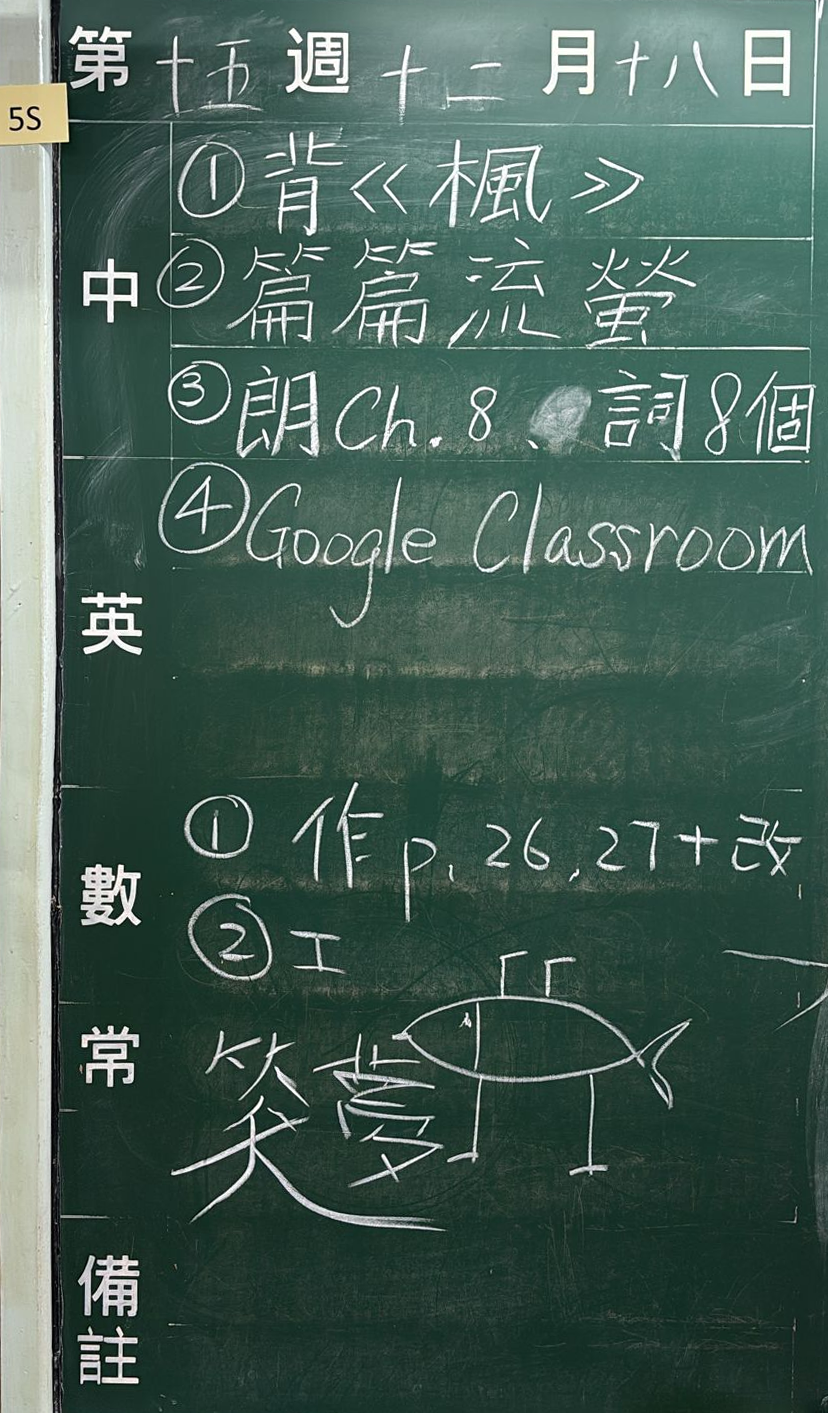 第十五週十二月十八日
5S
中
①背《楓》
②篇篇流螢
③朗Ch.8、詞8個
英
④Google Classroom
數
①作p.26,27+改
②工
常
笑夢
備註